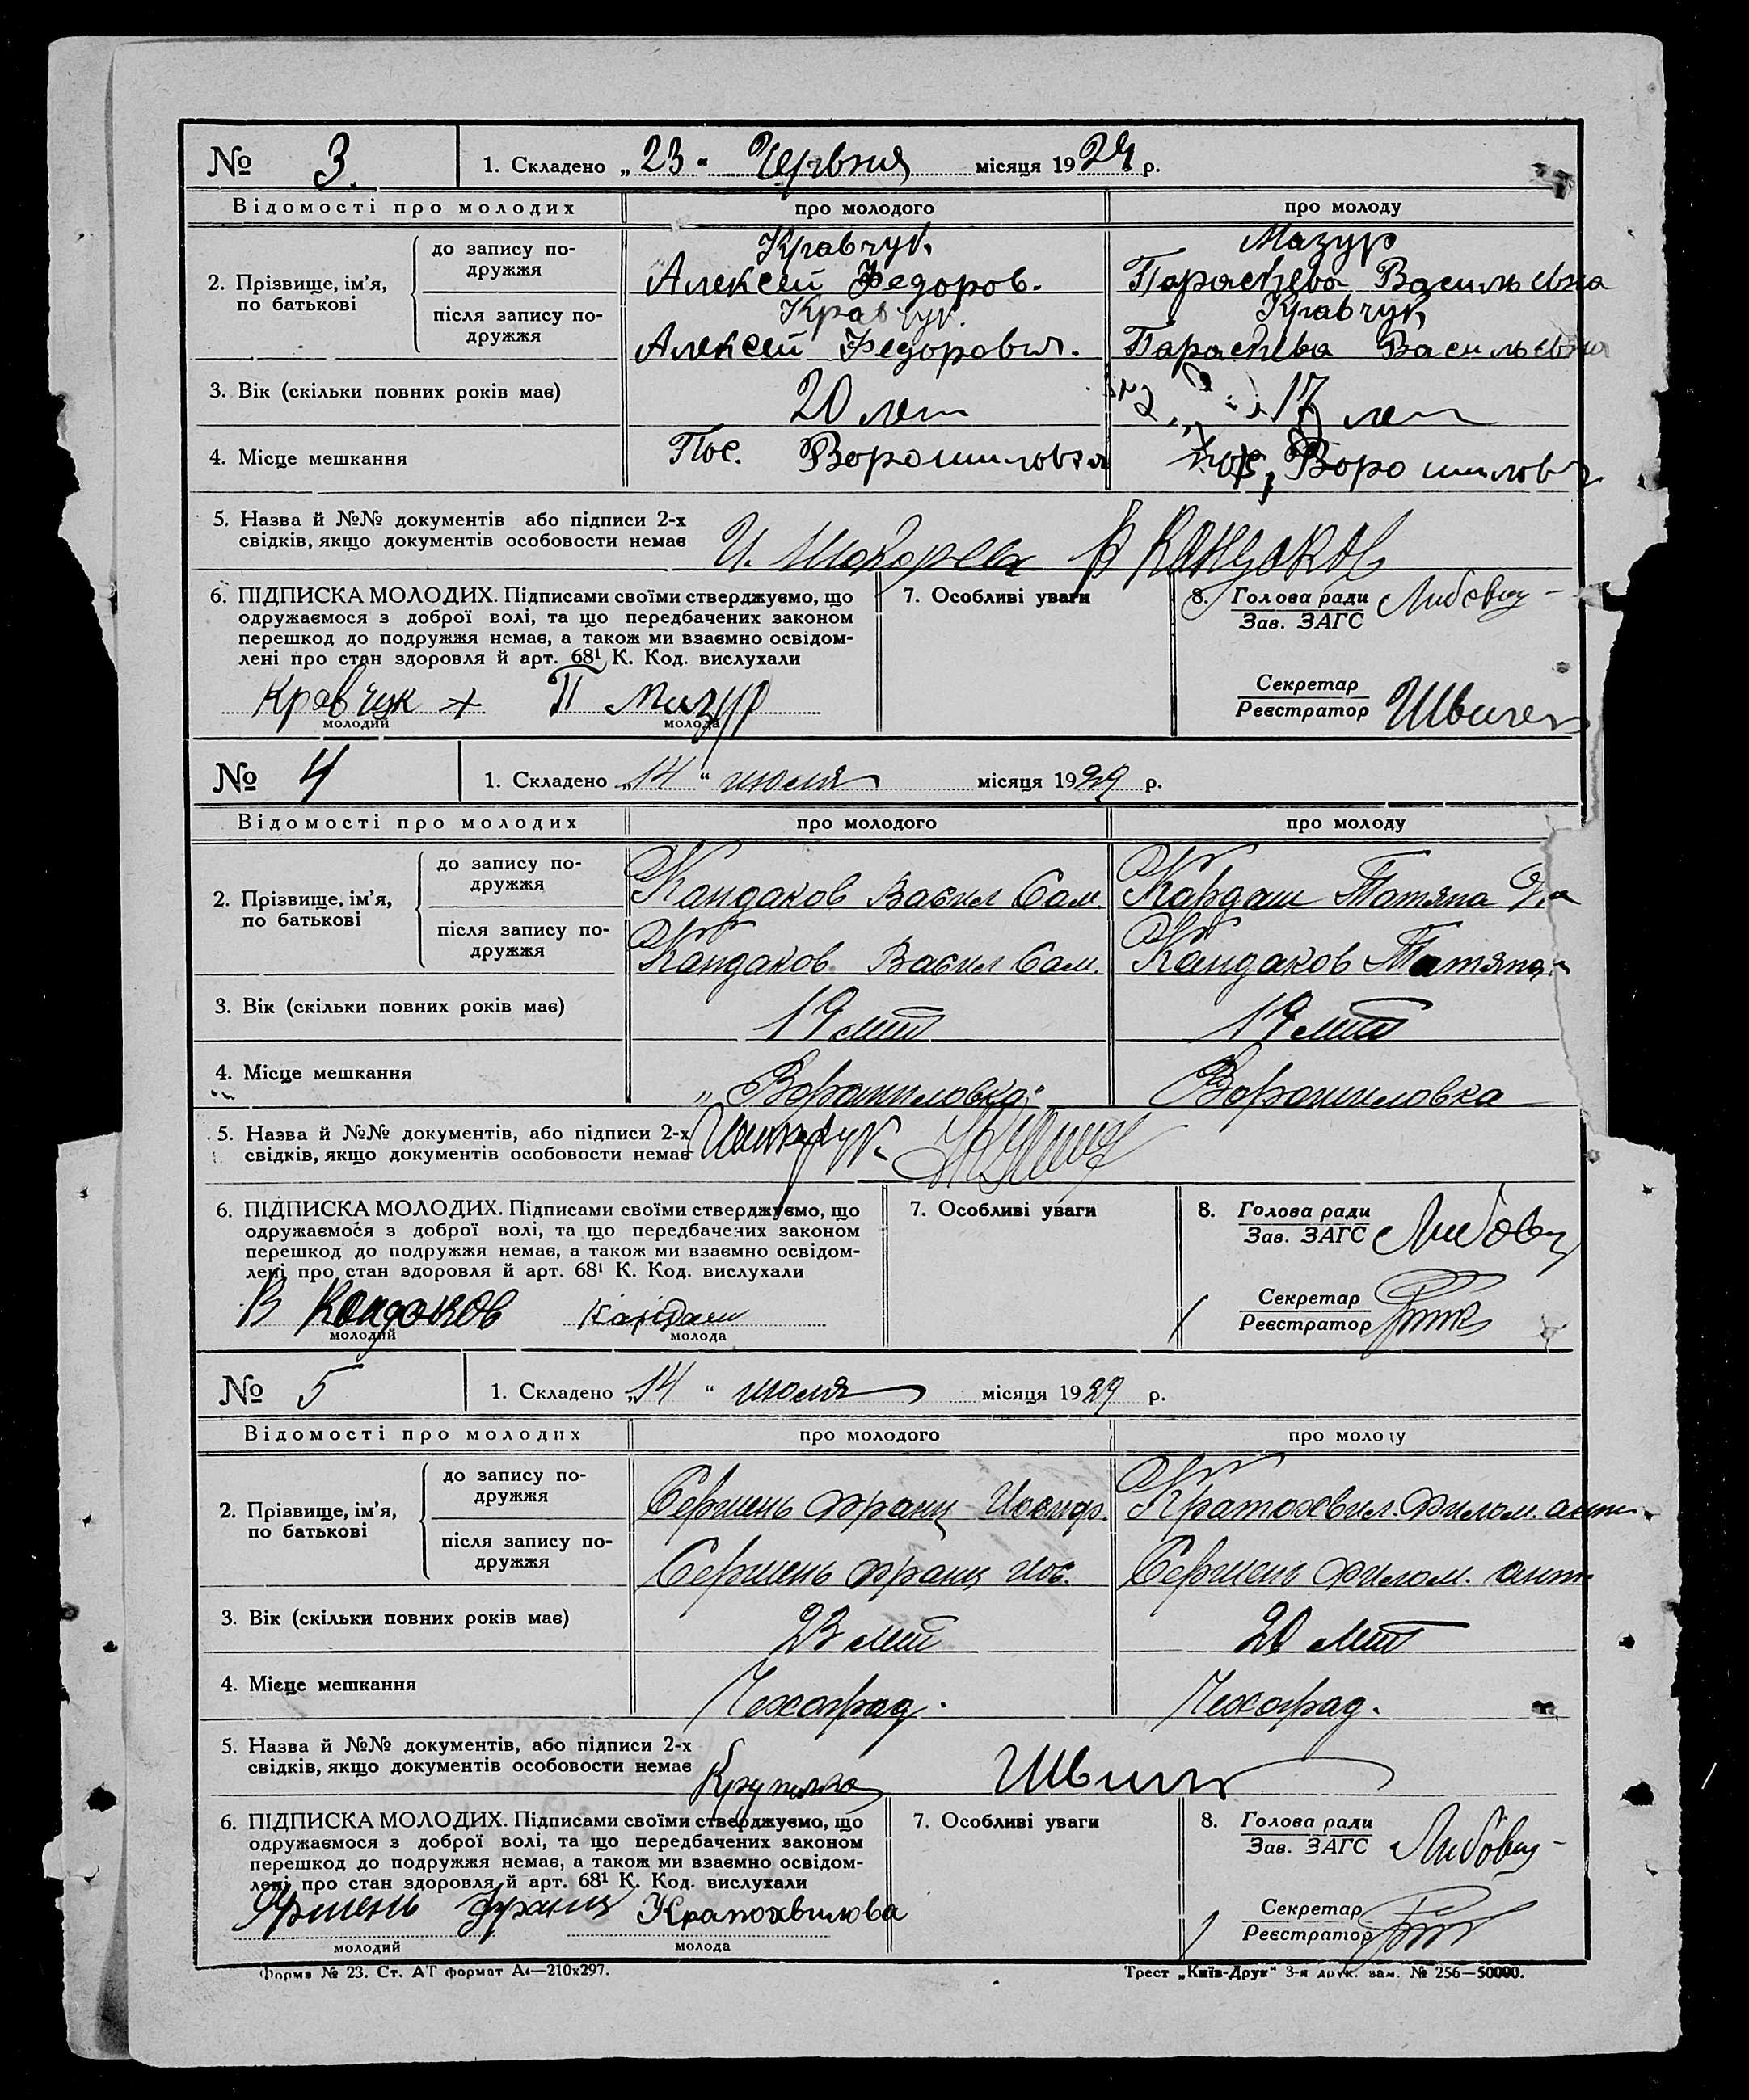 № 3. 1. Складено „23" Червня місяця 1929 р.
Відомості про молодих про молодого про молоду
2. Прізвище, ім'я, по батькові
до запису подружжя
Кравчук Мазур
Алексей Федоров. Парасkева Васильевна
після запису подружжя
Кравчук. Кравчук
Алексей Федорович. Парасkева Васильевна
3. Вік (скільки повних років має) 20 лет 17 лет
4. Місце мешкання Пос. Ворошиловка пос, Ворошиловка
5. Назва й №№ документів або підписи 2-х
свідків, якщо документів особовости немає
В Кандаков
6. ПІДПИСКА МОЛОДИХ. Підписами своїми стверджуємо, що
одружаємося з доброї волі, та що передбачених законом
перешкод до подружжя немає, а також ми взаємно освідом-
лені про стан здоровля й арт. 68¹ К. Код. вислухали
Кравчук П Мазур
молодий молода
7. Особливі уваги
8. Голова ради
Зав. ЗАГС
Секретар
Реєстратор
№ 4 1. Складено „14" июля місяця 1929 р.
Відомості про молодих про молодого про молоду
2. Прізвище, ім'я,
по батькові
до запису по-
дружжя
Кандаков Васил Сам. Кардаш Татяна
після запису по-
дружжя
Кандаков Васил Сам. Кандаков Татяна
3. Вік (скільки повних років має) 19 лет 19 лет
4. Місце мешкання „Ворошиловка" Ворошиловка
5. Назва й №№ документів, або підписи 2-х
свідків, якщо документів особовости немає
6. ПІДПИСКА МОЛОДИХ. Підписами своїми стверджуємо, що
одружаємося з доброї волі, та що передбачених законом
перешкод до подружжя немає, а також ми взаємно освідом-
лені про стан здоровля й арт. 68¹ К. Код. вислухали
В Кандаков Кардаш
молодий молода
7. Особливі уваги
8. Голова ради
Зав. ЗАГС
Секретар
Реєстратор
№ 5 1. Складено „14" июля місяця 1929 р.
Відомості про молодих про молодого про молоду
2. Прізвище, ім'я,
по батькові
до запису по-
дружжя
Сершень Франц Иосиф. Кратохвил. Филом. Ант.
після запису по-
дружжя
Сершень Франц Иос. Сершень Филом. Ант.
3. Вік (скільки повних років має) 23 лет 20 лет
4. Місце мешкання Чехоград. Чехоград.
5. Назва й №№ документів, або підписи 2-х
свідків, якщо документів особовости немає
6. ПІДПИСКА МОЛОДИХ. Підписами своїми стверджуємо, що
одружаємося з доброї волі, та що передбачених законом
перешкод до подружжя немає, а також ми взаємно освідом-
лені про стан здоровля й арт. 68¹ К. Код. вислухали
Франц Кратохвилова
молодий молода
7. Особливі уваги
8. Голова ради
Зав. ЗАГС
Секретар
Реєстратор
Форма № 23. Ст. АТ формат А₄—210x297. Трест „Київ-Друк" 3-я друк. зам. № 256—50000.